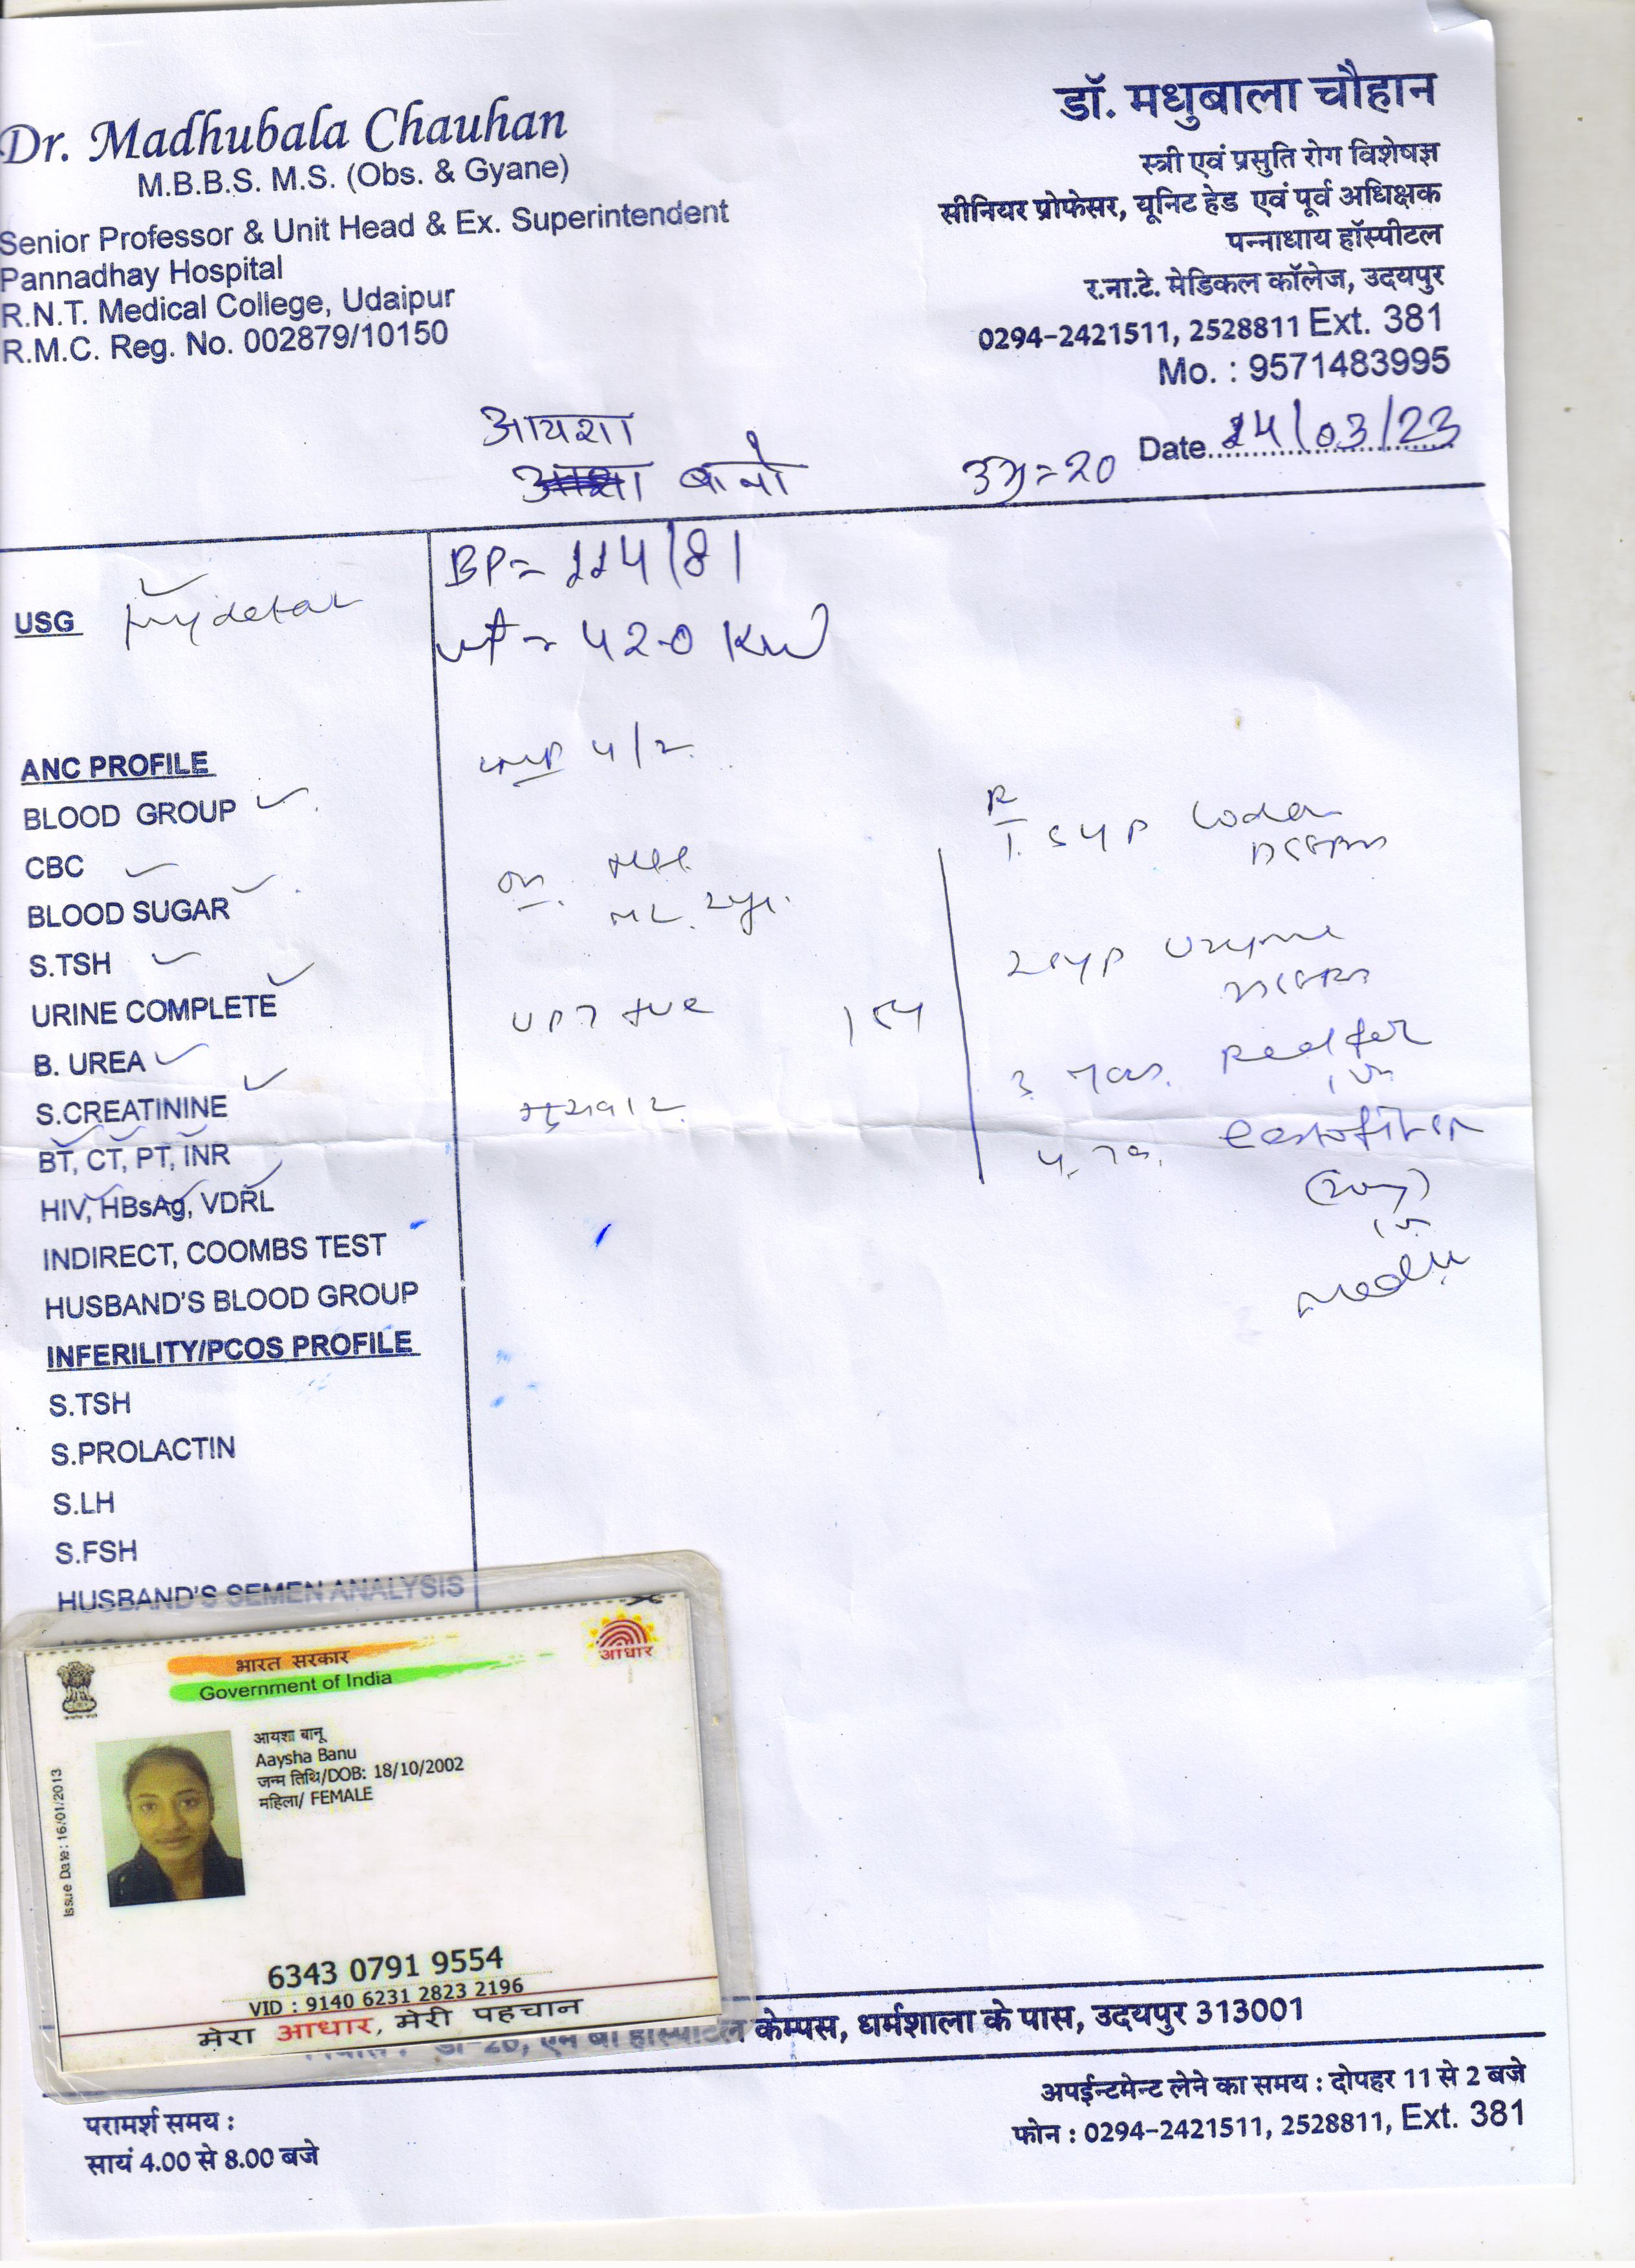 Dr. Madhubala Chauhan
M.B.B.S. M.S. (Obs. & Gyane)
Senior Professor & Unit Head & Ex. Superintendent
Pannadhay Hospital
R.N.T. Medical College, Udaipur
R.M.C. Reg. No. 002879/10150
डॉ. मधुबाला चौहान
स्त्री एवं प्रसुति रोग विशेषज्ञ
सीनियर प्रोफेसर, यूनिट हेड एवं पूर्व अधिक्षक
पन्नाधाय हॉस्पीटल
र.ना.टे. मेडिकल कॉलेज, उदयपुर
0294-2421511, 2528811 Ext. 381
Mo. : 9571483995
Date 14/03/23
आयशा
बानो
उम्र = 20
BP = 114/81
wt = 42.0 KG
USG
ANC PROFILE
BLOOD GROUP
CBC
BLOOD SUGAR
S.TSH
URINE COMPLETE
B. UREA
S.CREATININE
BT, CT, PT, INR
HIV, HBsAg, VDRL
INDIRECT, COOMBS TEST
HUSBAND'S BLOOD GROUP
INFERILITY/PCOS PROFILE
S.TSH
S.PROLACTIN
S.LH
S.FSH
HUSBAND'S SEMEN ANALYSIS
LMP 4/2
ML 2yr.
UPT +ve
R
1. Syp
2 Syp
3
4.
भारत सरकार
Government of India
आधार
आयशा बानू
Aaysha Banu
जन्म तिथि/DOB: 18/10/2002
महिला/ FEMALE
Issue Date: 16/01/2013
6343 0791 9554
VID : 9140 6231 2823 2196
मेरा आधार, मेरी पहचान
केम्पस, धर्मशाला के पास, उदयपुर 313001
परामर्श समय :
सायं 4.00 से 8.00 बजे
अपईन्टमेन्ट लेने का समय : दोपहर 11 से 2 बजे
फोन : 0294-2421511, 2528811, Ext. 381